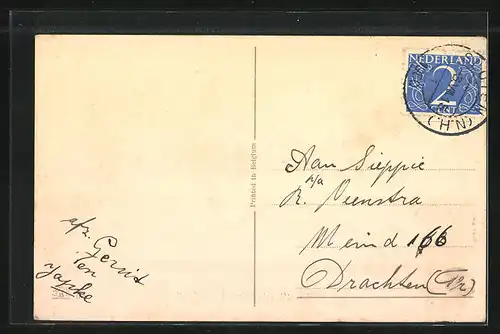 NEDERLAND
2
CENT
(N.H.)
Printed in Belgium
Aan Sieppie
p/a
R. Veenstra
Meind 166
Drachten (Fr)
afz. Gerrit
en
Japke